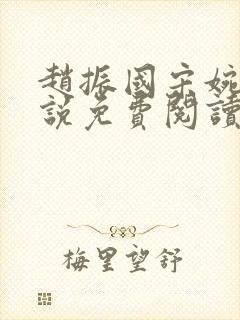 趙振國宋婉
說免費閱讀
梅里望舒